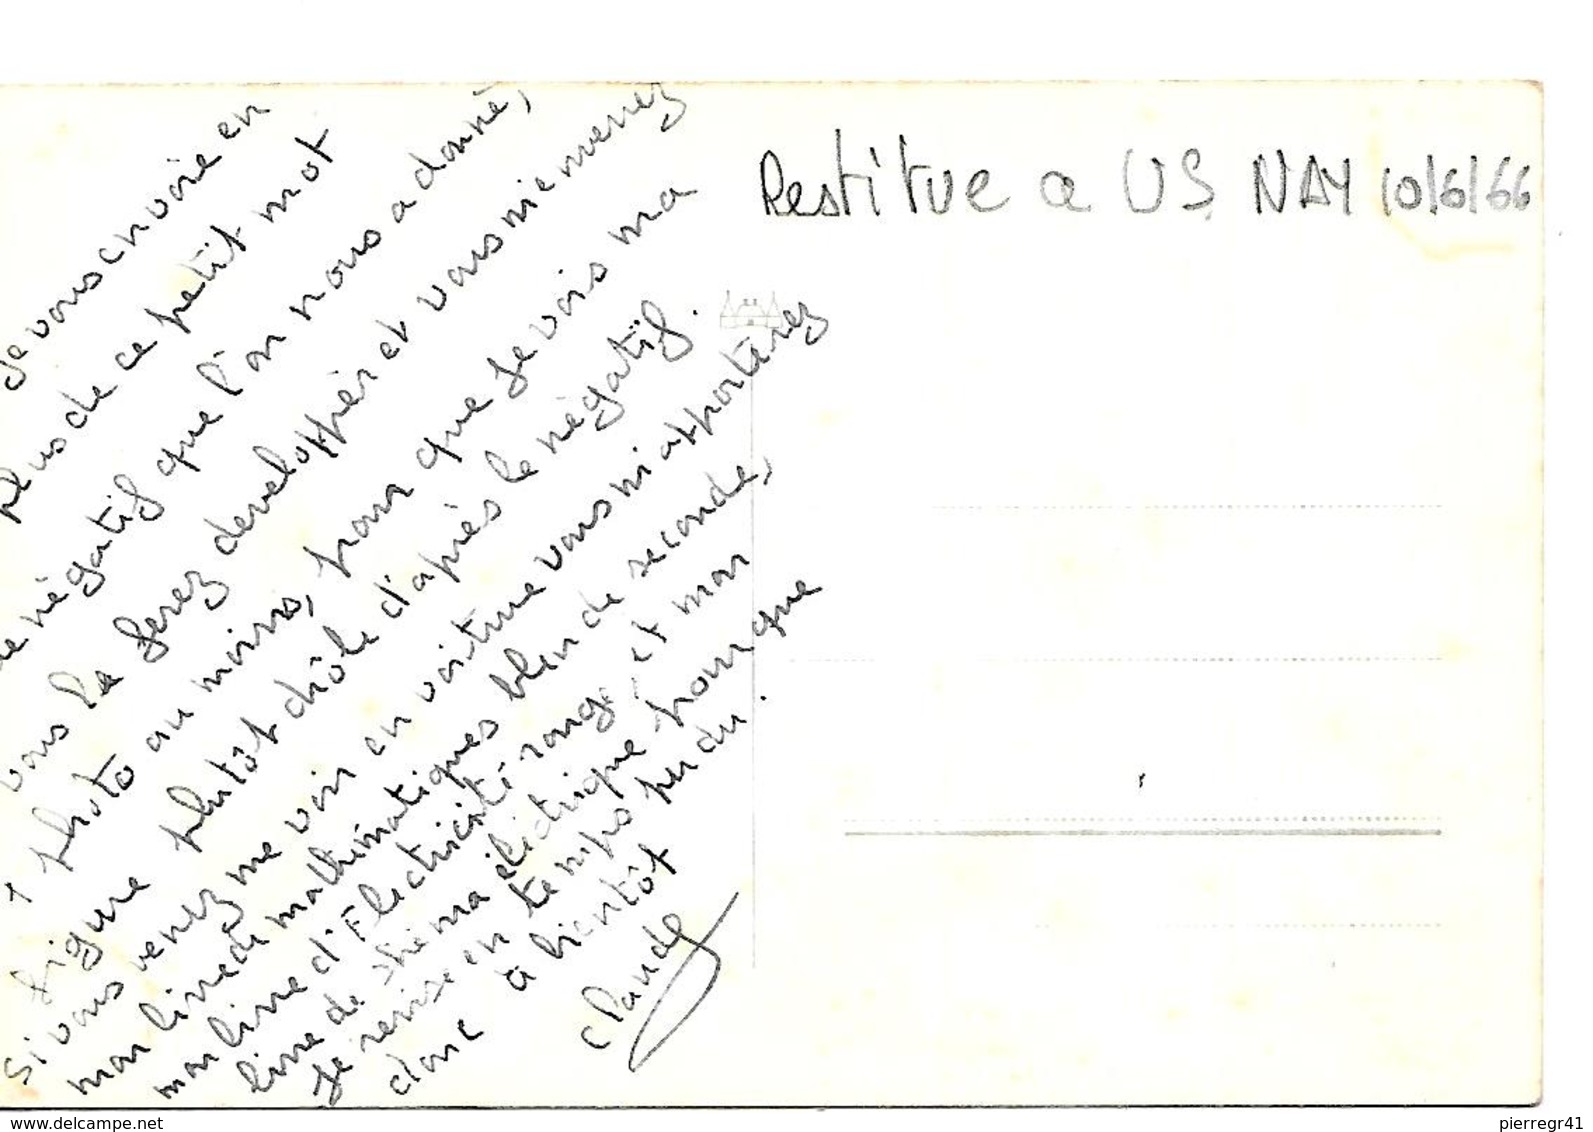 Je vous envoie en
plus de ce petit mot
le négatif que l'on nous a donné,
vous la ferez developper et vous m'emenez
1 photo au moins, pour que je vois ma
figure plutôt drôle d'après le négatif.
Si vous venez me voir en voiture vous m'apporterez
mon livre de mathématiques bleu de seconde,
mon livre d'Electricité rouge, et mon
livre de shéma éléctrique pour que
je revise en temps perdu.
donc à bientôt
Claude
Restitue a US NAY 10/6/66
delcampe.net
pierregr41